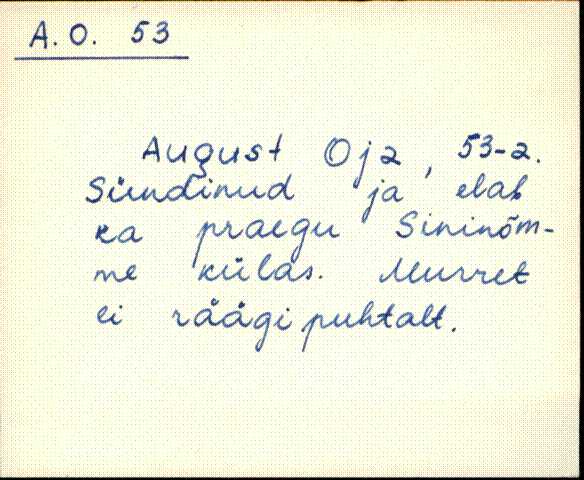 A. O. 53
August Oja, 53-a.
Sündinud ja elab
ka praegu Sininõm-
me külas. Murret
ei räägi puhtalt.